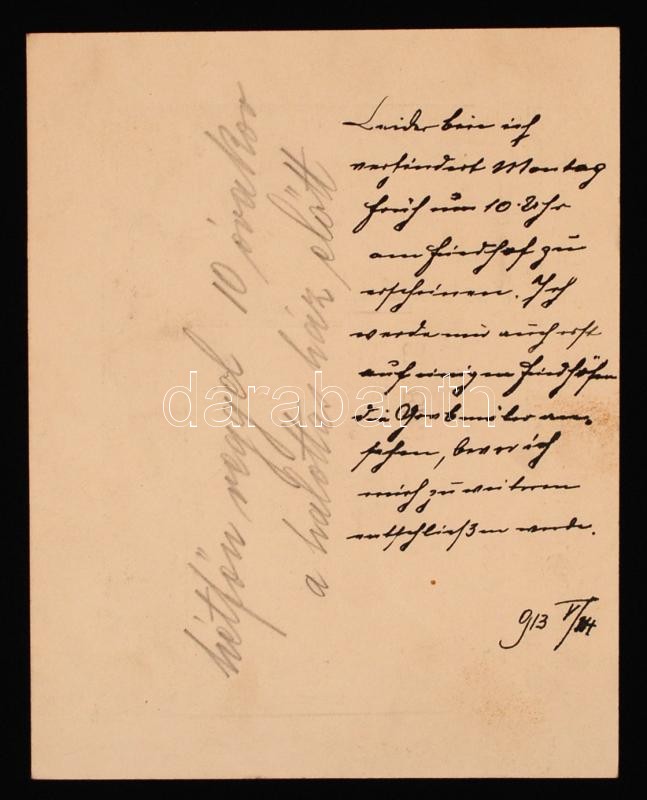 Leider bin ich
verhindert Montag
früh um 10 Uhr
am Friedhof zu
erscheinen. Ich
werde mir auch erst
auf einigen Friedhöfen
die Grabmäler an-
sehen, bevor ich
mich zu weiterem
entschließen werde.
913 V/24
hétfőn reggel 10 órakor
a halottas ház előtt
darabanth